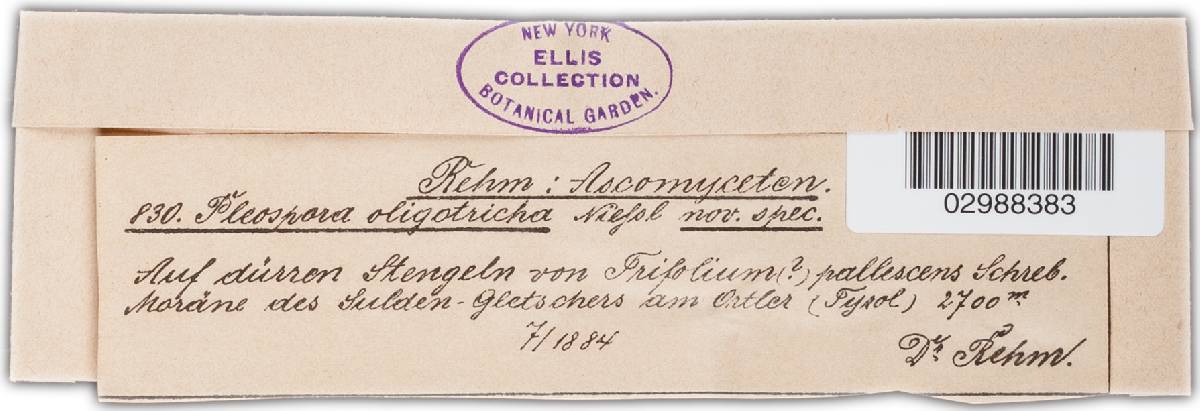 NEW YORK
ELLIS
COLLECTION
BOTANICAL GARDEN.
02988383
Rehm: Ascomyceten.
830. Pleospora oligotricha Niessl nov. spec.
Auf dürren Stengeln von Trifolium(?) pallescens Schreb.
Moräne des Sulden-Gletschers am Ortler (Tyrol) 2700 m
7/1884
Dr. Rehm.